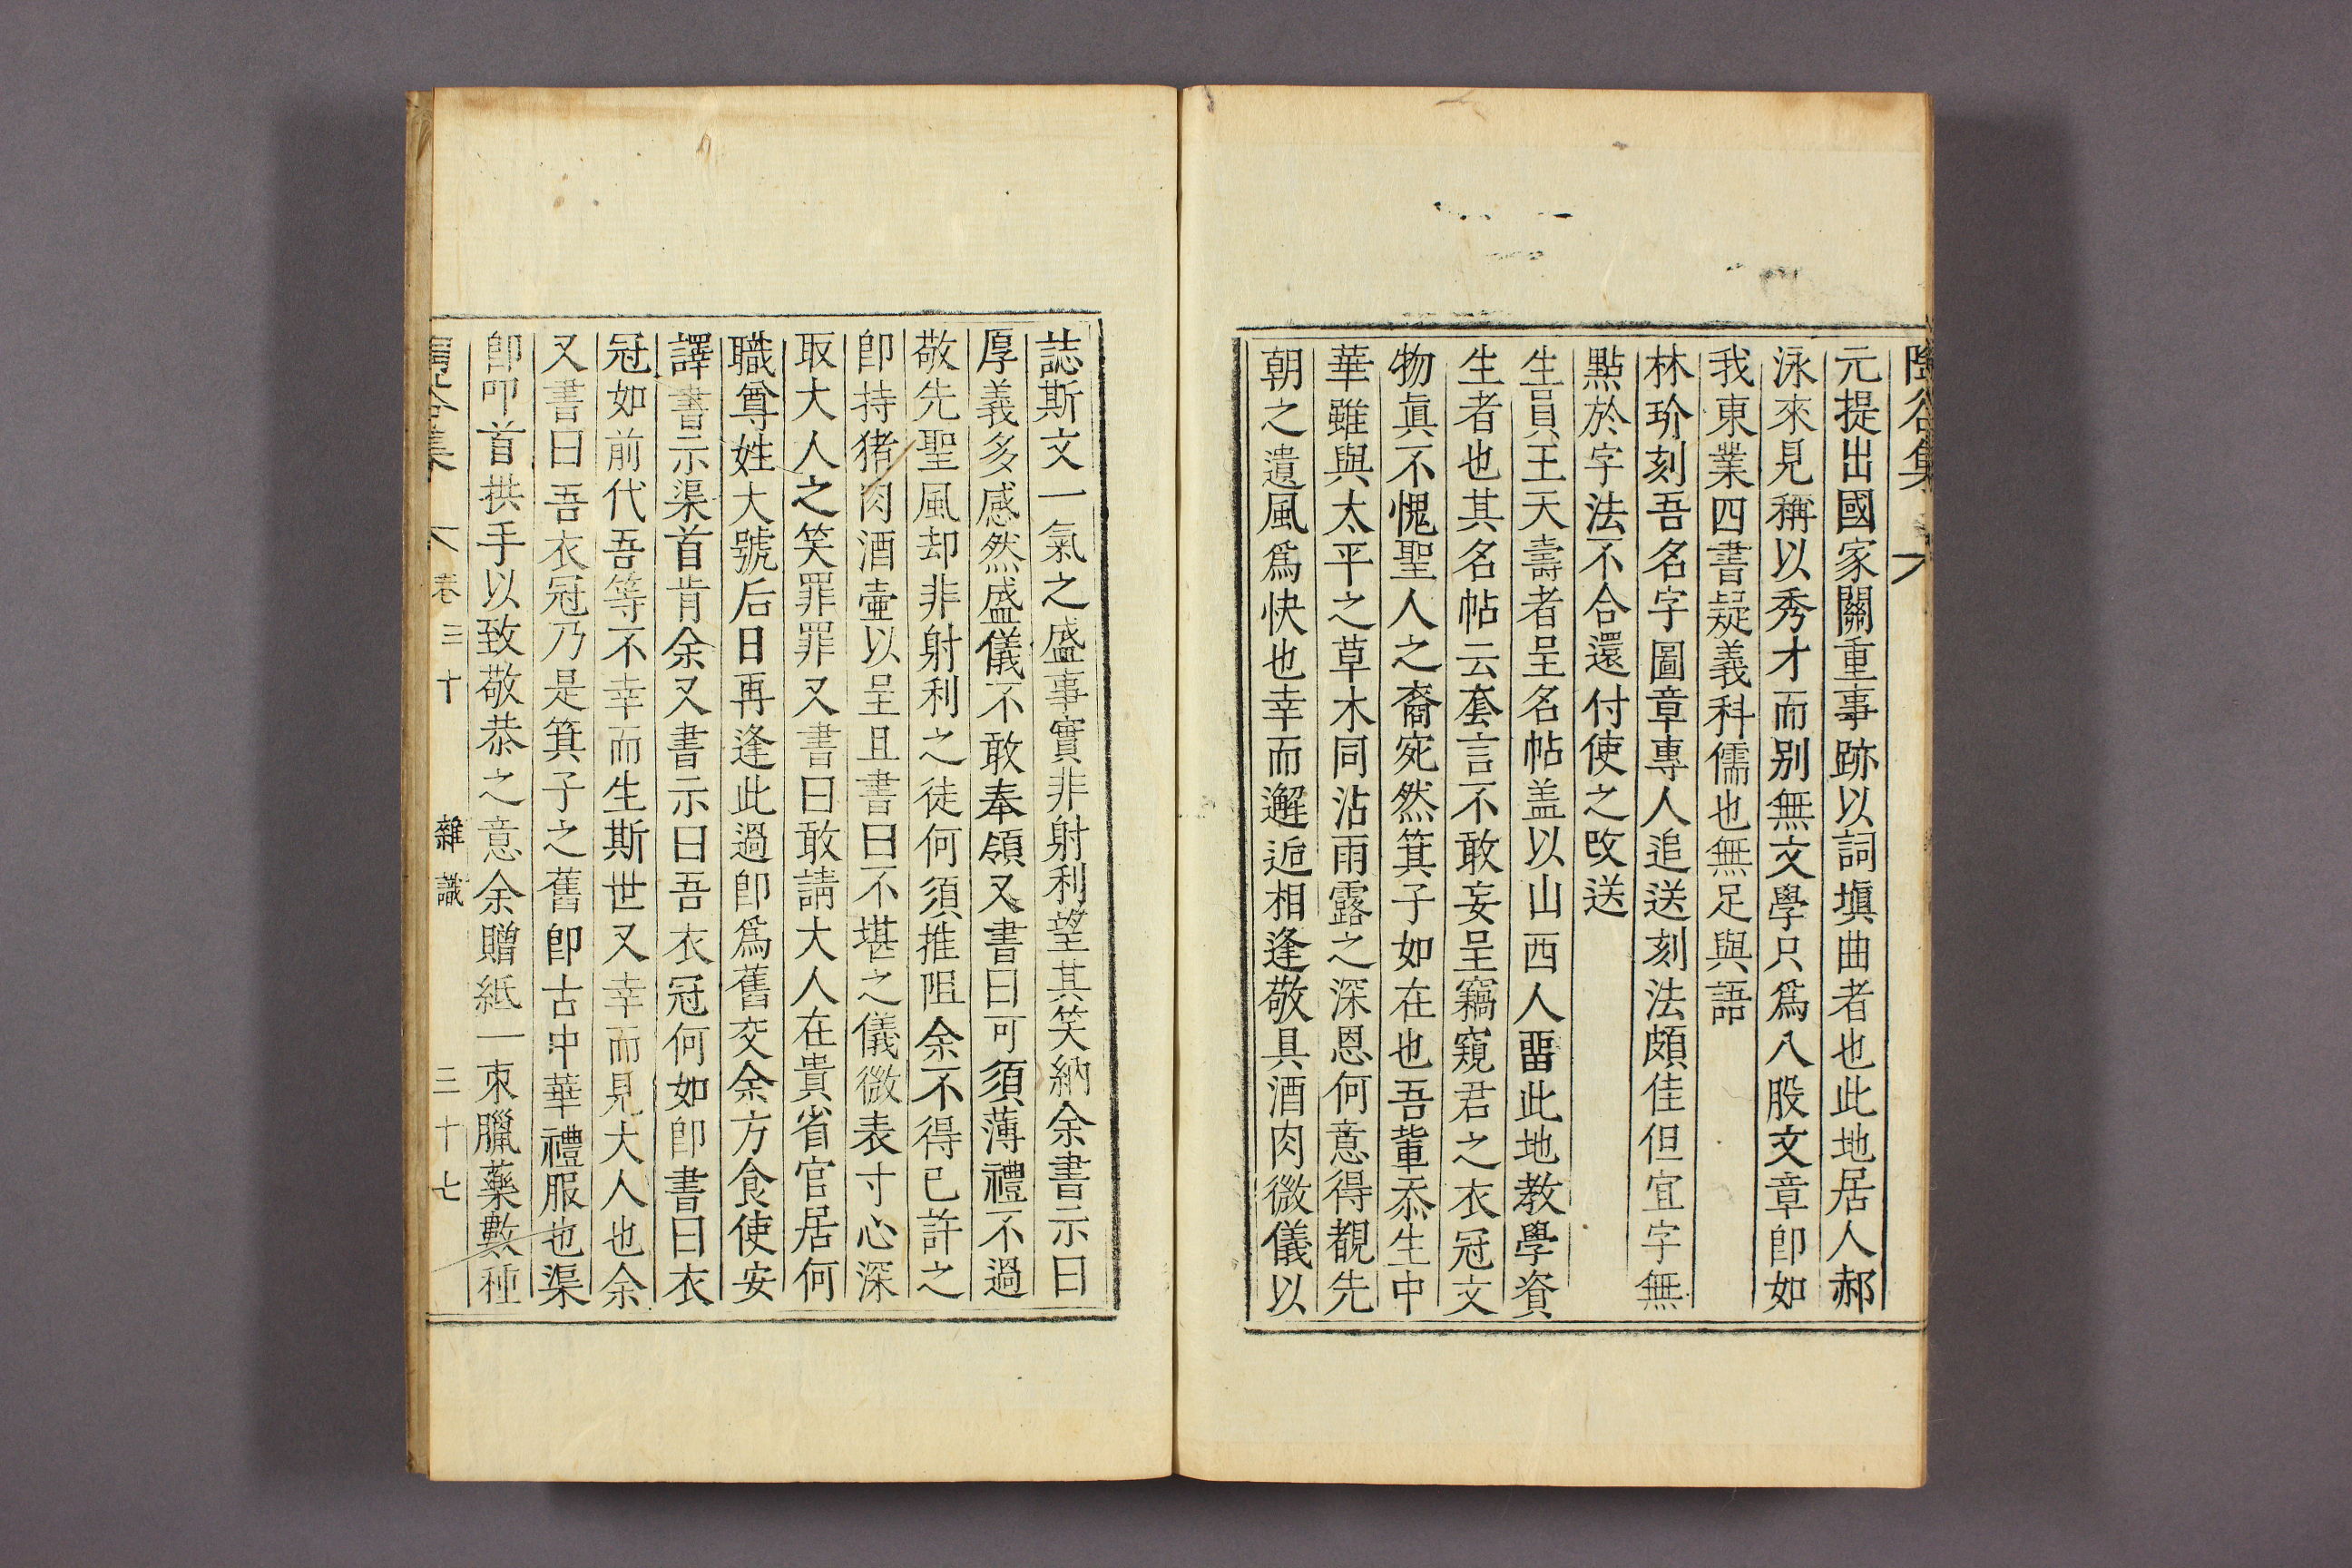 陶谷集
元提出國家關重事跡以詞塡曲者也此地居人郝
泳來見稱以秀才而別無文學只爲八股文章卽如
我東業四書疑義科儒也無足與語
林玠刻吾名字圖章專人追送刻法頗佳但宜字無
點於字法不合還付使之改送
生員王天壽者呈名帖盖以山西人畱此地教學資
生者也其名帖云套言不敢妄呈竊窺君之衣冠文
物眞不愧聖人之裔宛然箕子如在也吾軰忝生中
華雖與太平之草木同沾雨露之深恩何意得覩先
朝之遺風爲快也幸而邂逅相逢敬具酒肉微儀以
誌斯文一氣之盛事實非射利望其笑納余書示曰
厚義多感然盛儀不敢奉領又書曰可須薄禮不過
敬先聖風却非射利之徒何須推阻余不得已許之
卽持猪肉酒壷以呈且書曰不堪之儀微表寸心深
取大人之笑罪罪又書曰敢請大人在貴省官居何
職尊姓大號后日再逢此過卽爲舊交余方食使安
譯書示渠首肯余又書示曰吾衣冠何如卽書曰衣
冠如前代吾等不幸而生斯世又幸而見大人也余
又書曰吾衣冠乃是箕子之舊卽古中華禮服也渠
卽叩首拱手以致敬恭之意余贈紙一束臘藥數種
陶谷集 卷三十 雜識 三十七